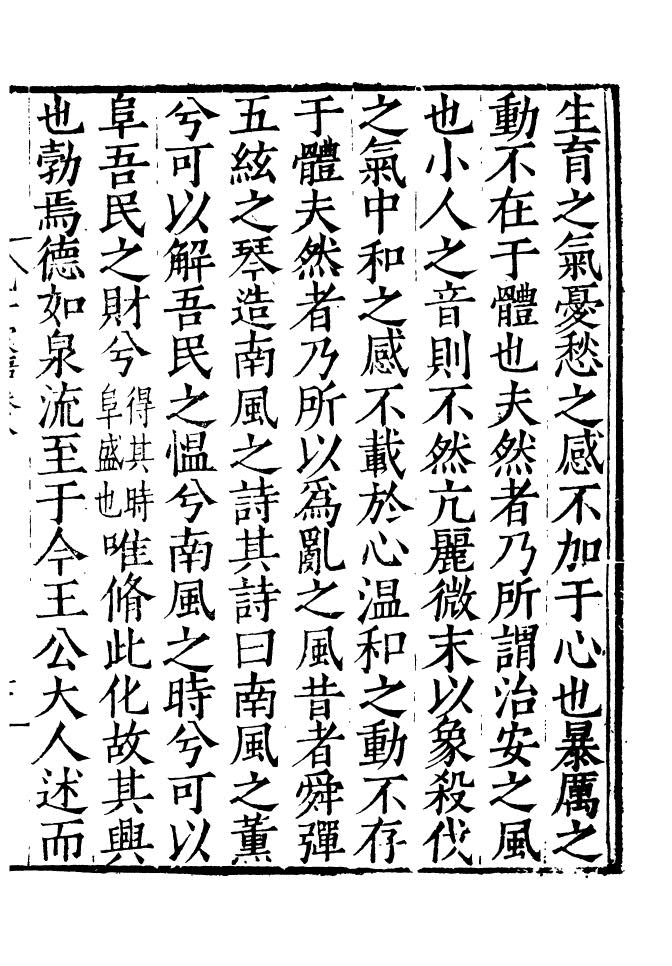 生育之氣憂愁之感不加于心也暴厲之
動不在于體也夫然者乃所謂治安之風
也小人之音則不然亢麗微末以象殺伐
之氣中和之感不載於心温和之動不存
于體夫然者乃所以爲亂之風昔者舜彈
五絃之琴造南風之詩其詩曰南風之薰
兮可以解吾民之愠兮南風之時兮可以
阜吾民之財兮得其時阜盛也唯脩此化故其興
也勃焉德如泉流至于今王公大人述而